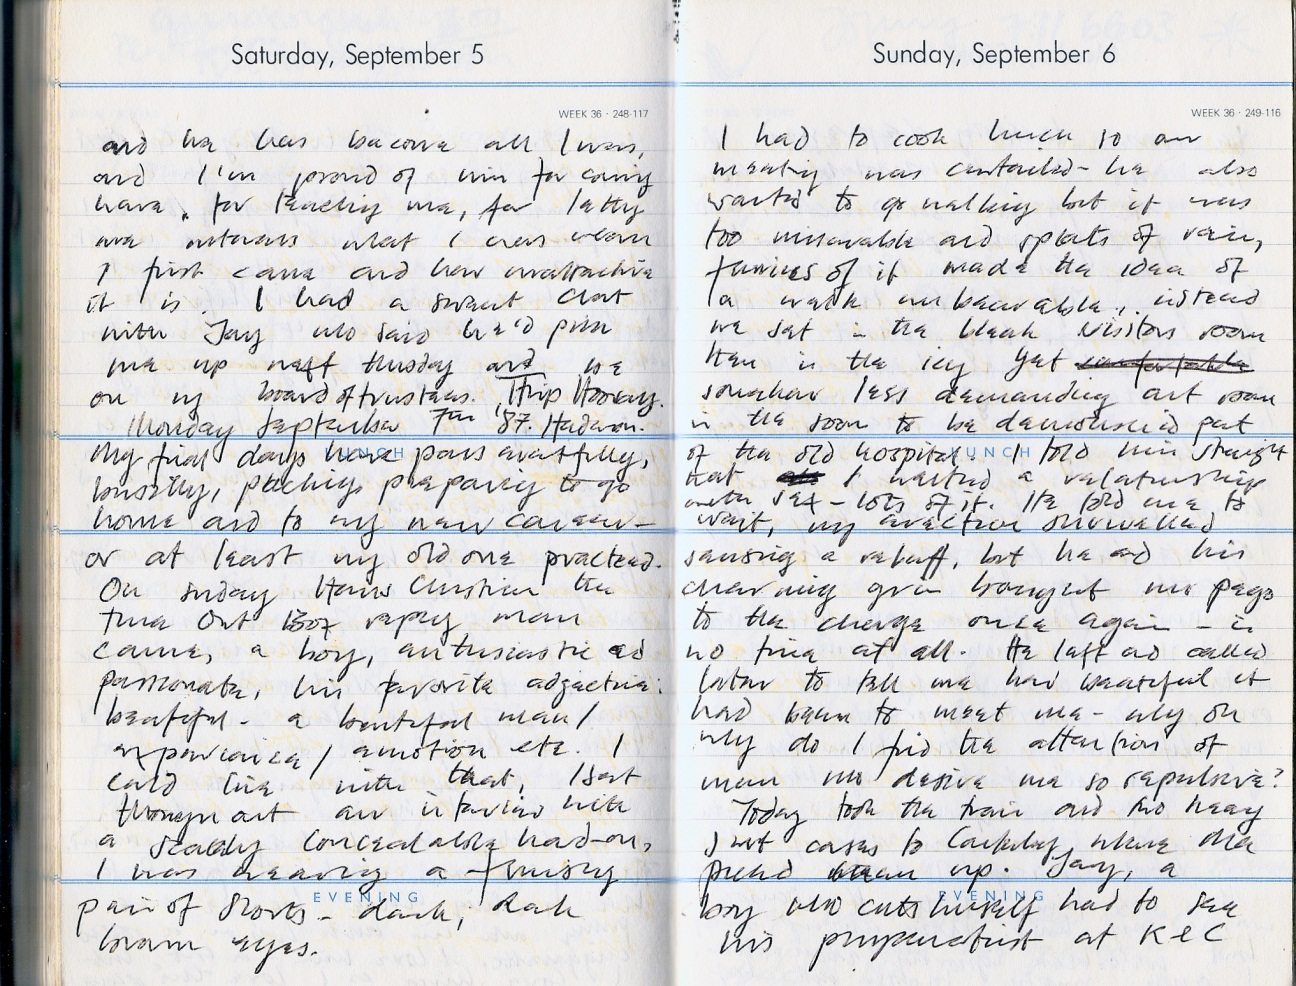 Saturday, September 5
WEEK 36 · 248-117
and he has become all I was,
and I'm proud of him for coming
here, for teaching me, for letting
me witness what I was when
I first came and how unattractive
it is. I had a sweet chat
with Jay who said he'd pick
me up next thusday and we
on my board of trustees. Hip Hooray.
Monday September 7th '87.
My final days have pass
packings preparing to go
home and to my new career -
or at least my old one
On sunday Hans Christian the
Time Out Box reply man
came, a boy, enthusiastic ad
passionate, his favorite adjective:
beatiful - a beautiful man/
experience/emotion etc. I
cald live with that, I sat
thrught our interview with
a steady concealable hard-on,
I was wearing a
EVENING
pair of shorts - dark, dark
brown eyes.
Sunday, September 6
WEEK 36 · 249-116
I had to cook lunch so our
meeting was - he also
wanted to go walking but it was
too miserable and splats of rain,
of it made the idea of
a walk unbearable, instead
we sat in the bleak Visitors room
then in the icy yet
somehow less demanding art room
in the soon to be demolished part
LUNCH
of the old hospital. I told him straight
that I wanted a relationship
with sex - lots of it. He told me to
wait, my erection shrivelled
sensing a rebuff, but he and his
charming grin brought me
to the charge once again - in
no time at all. He left and called
later to tell me how beautiful it
had been to meet me - why oh
why do I find the attention of
men who desire me so repulsive?
Today took the train and two heavy
suit cases to where
picked up. Jay, a
EVENING
boy who cuts himself had to see
his at K & C